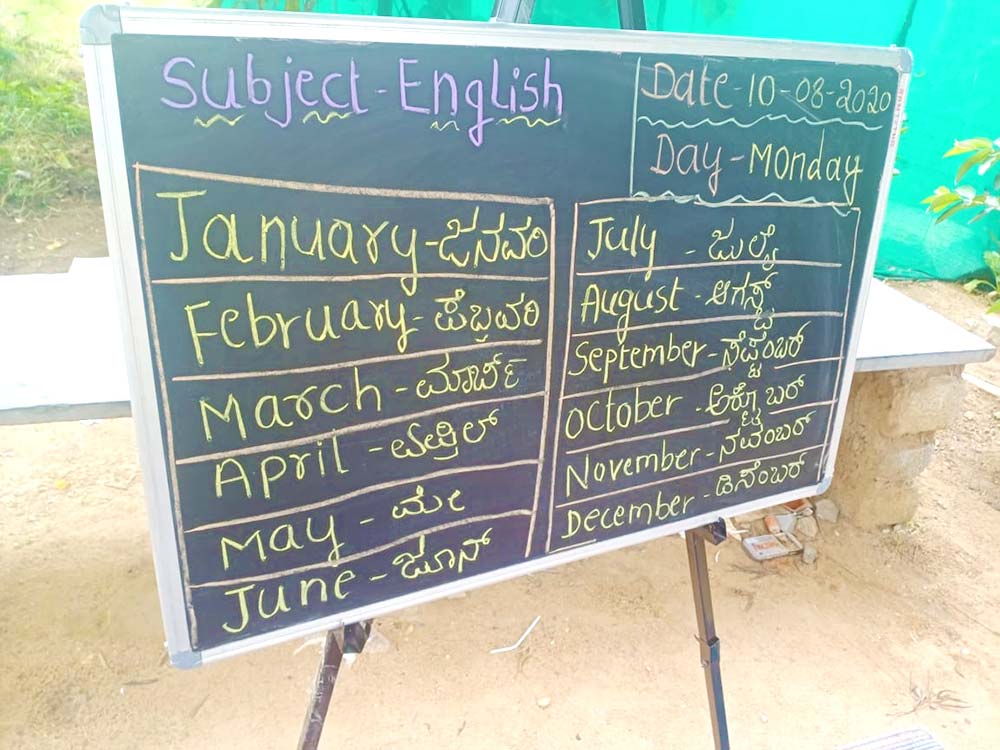 Subject - English
Date - 10 - 08 - 2020
Day - Monday
January - ಜನವರಿ
February - ಫೆಬ್ರವರಿ
March - ಮಾರ್ಚ್
April - ಏಪ್ರಿಲ್
May - ಮೇ
June - ಜೂನ್
July - ಜುಲೈ
August - ಆಗಸ್ಟ್
September - ಸೆಪ್ಟೆಂಬರ್
October - ಅಕ್ಟೋಬರ್
November - ನವೆಂಬರ್
December - ಡಿಸೆಂಬರ್